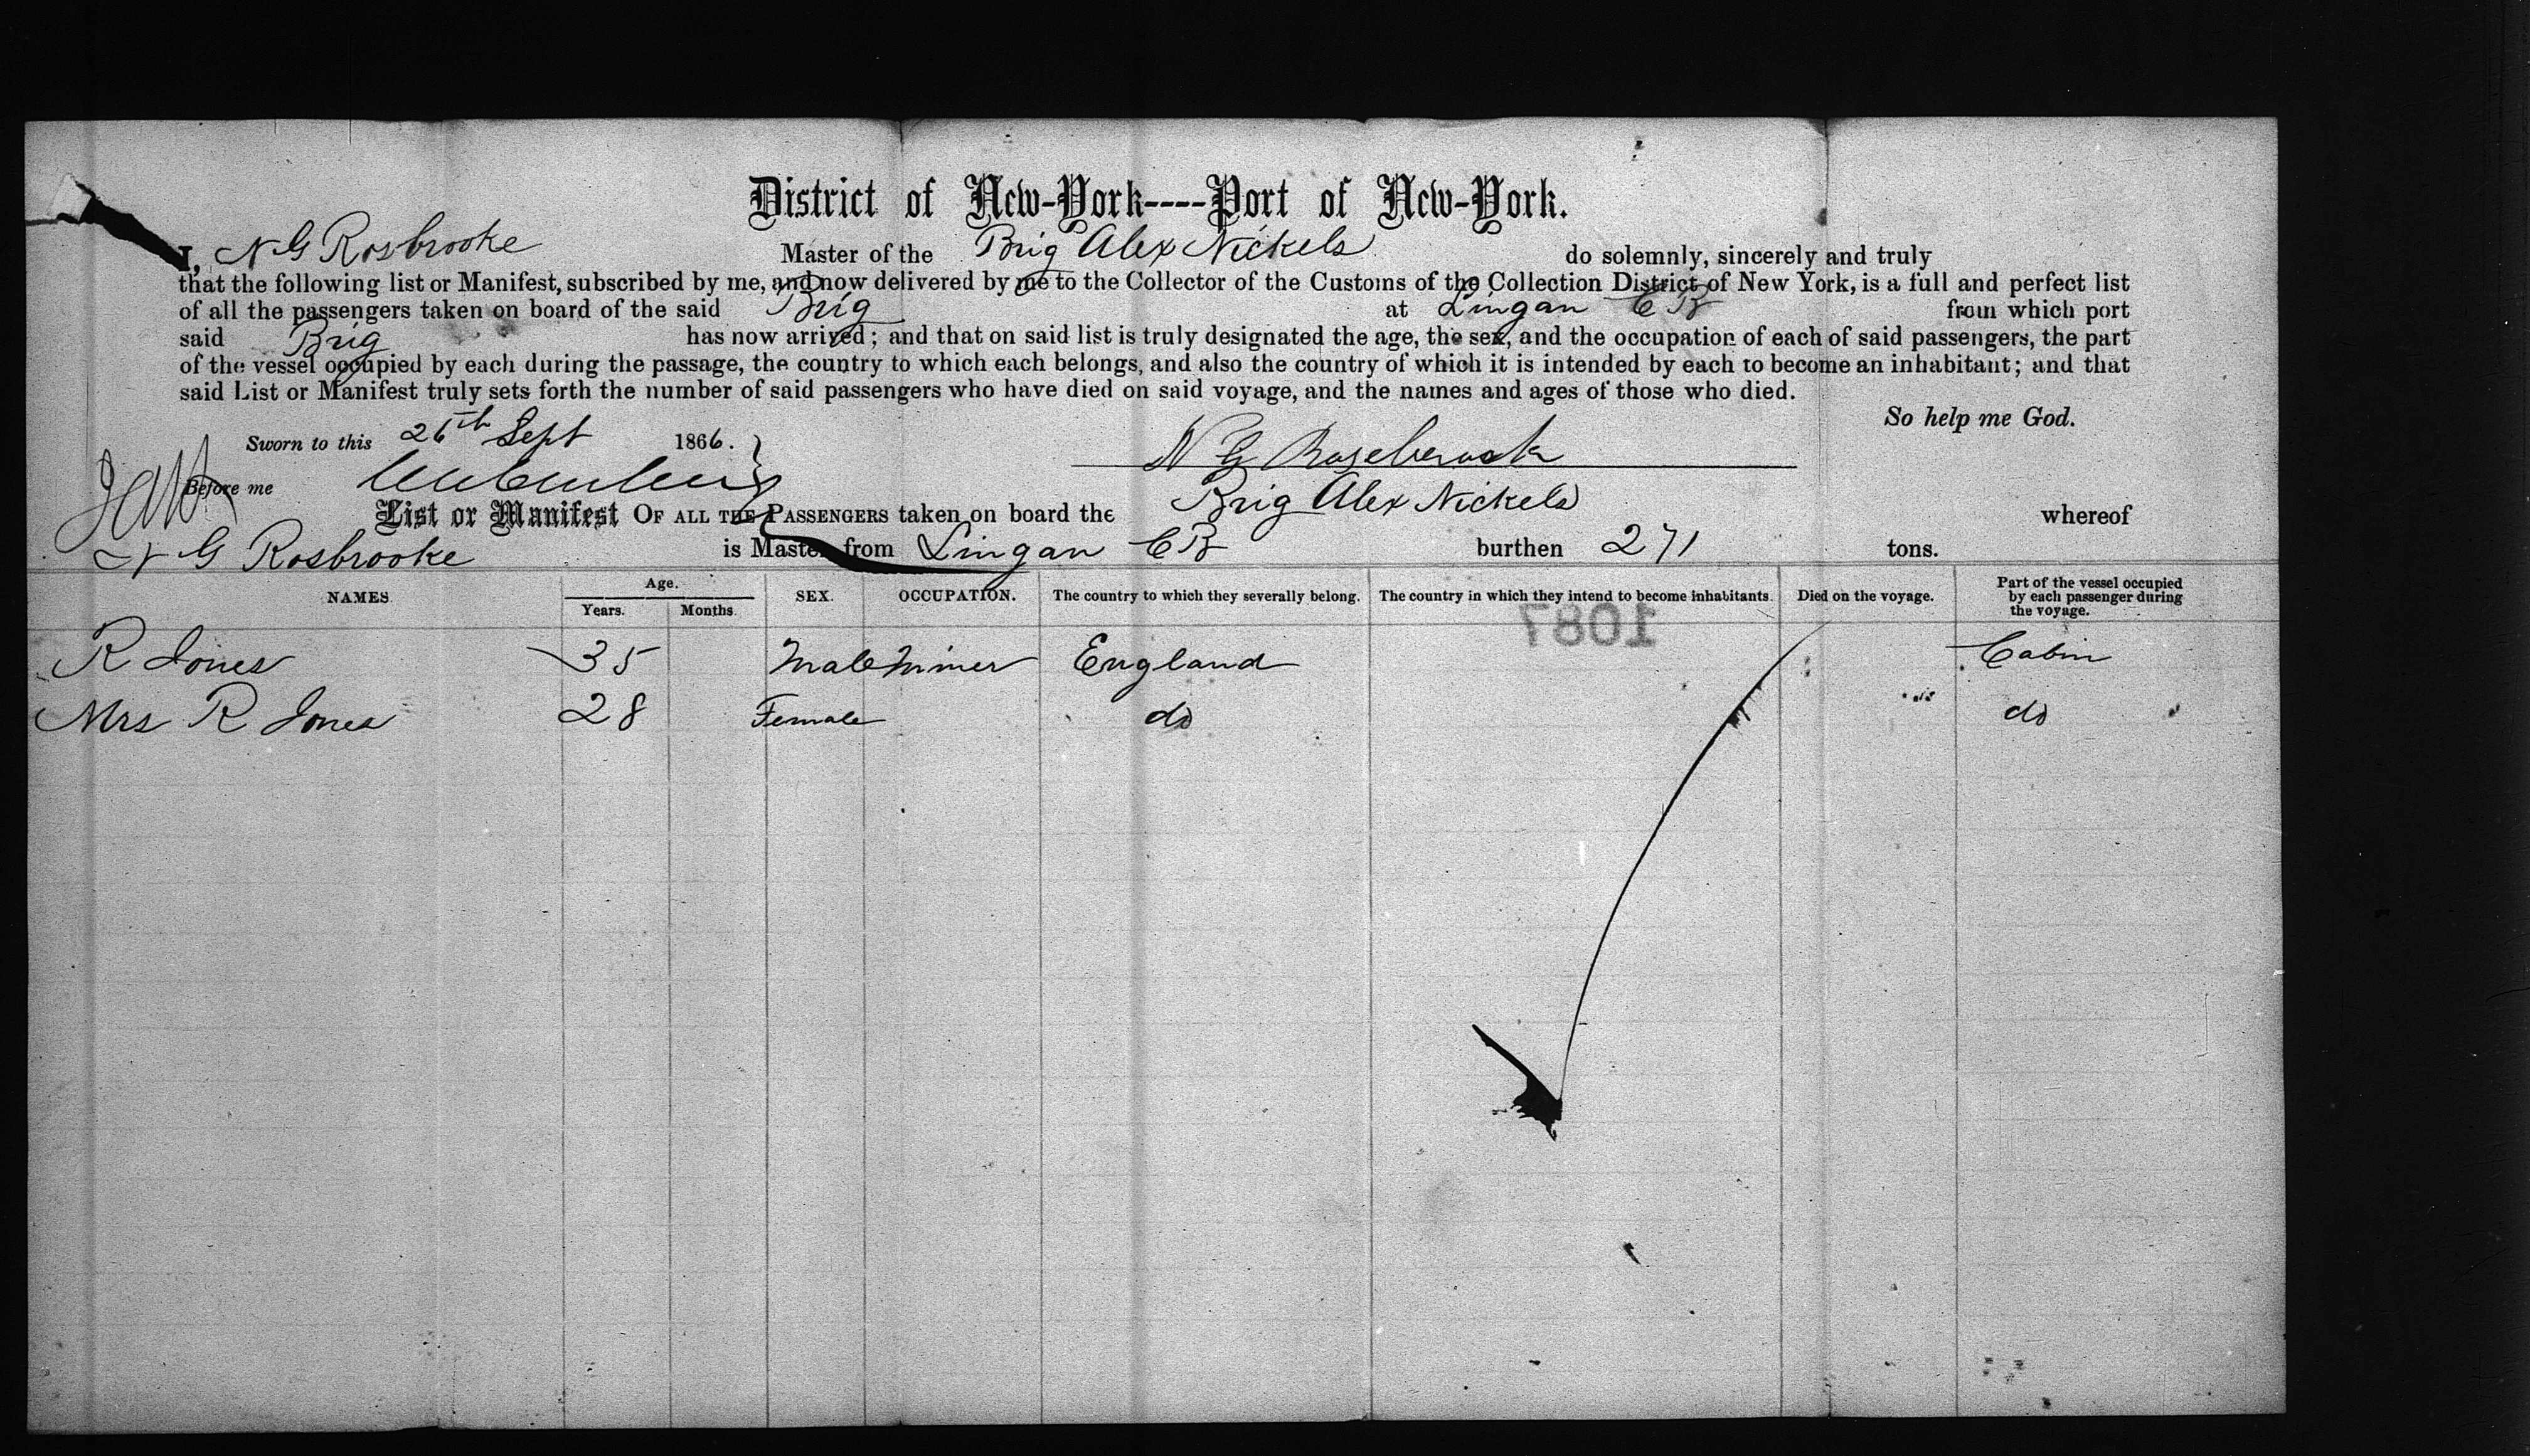 District of New-York----Port of New-York.
I, N G Rosbrooke Master of the Brig Alex Nickels do solemnly, sincerely and truly
that the following list or Manifest, subscribed by me, and now delivered by me to the Collector of the Customs of the Collection District of New York, is a full and perfect list
of all the passengers taken on board of the said Brig at Lingan C B from which port
said Brig has now arrived; and that on said list is truly designated the age, the sex, and the occupation of each of said passengers, the part
of the vessel occupied by each during the passage, the country to which each belongs, and also the country of which it is intended by each to become an inhabitant; and that
said List or Manifest truly sets forth the number of said passengers who have died on said voyage, and the names and ages of those who died.
So help me God.
Sworn to this 26th Sept 1866.
N G
Before me
List or Manifest OF ALL THE PASSENGERS taken on board the Brig Alex Nickels whereof
N G Rosbrooke is Master from Lingan C B burthen 271 tons.
NAMES. Age. Years. Months. SEX. OCCUPATION. The country to which they severally belong. The country in which they intend to become inhabitants. Died on the voyage. Part of the vessel occupied by each passenger during the voyage.
1087
R Jones 35 Male Miner England Cabin
Mrs R Jones 28 Female do do